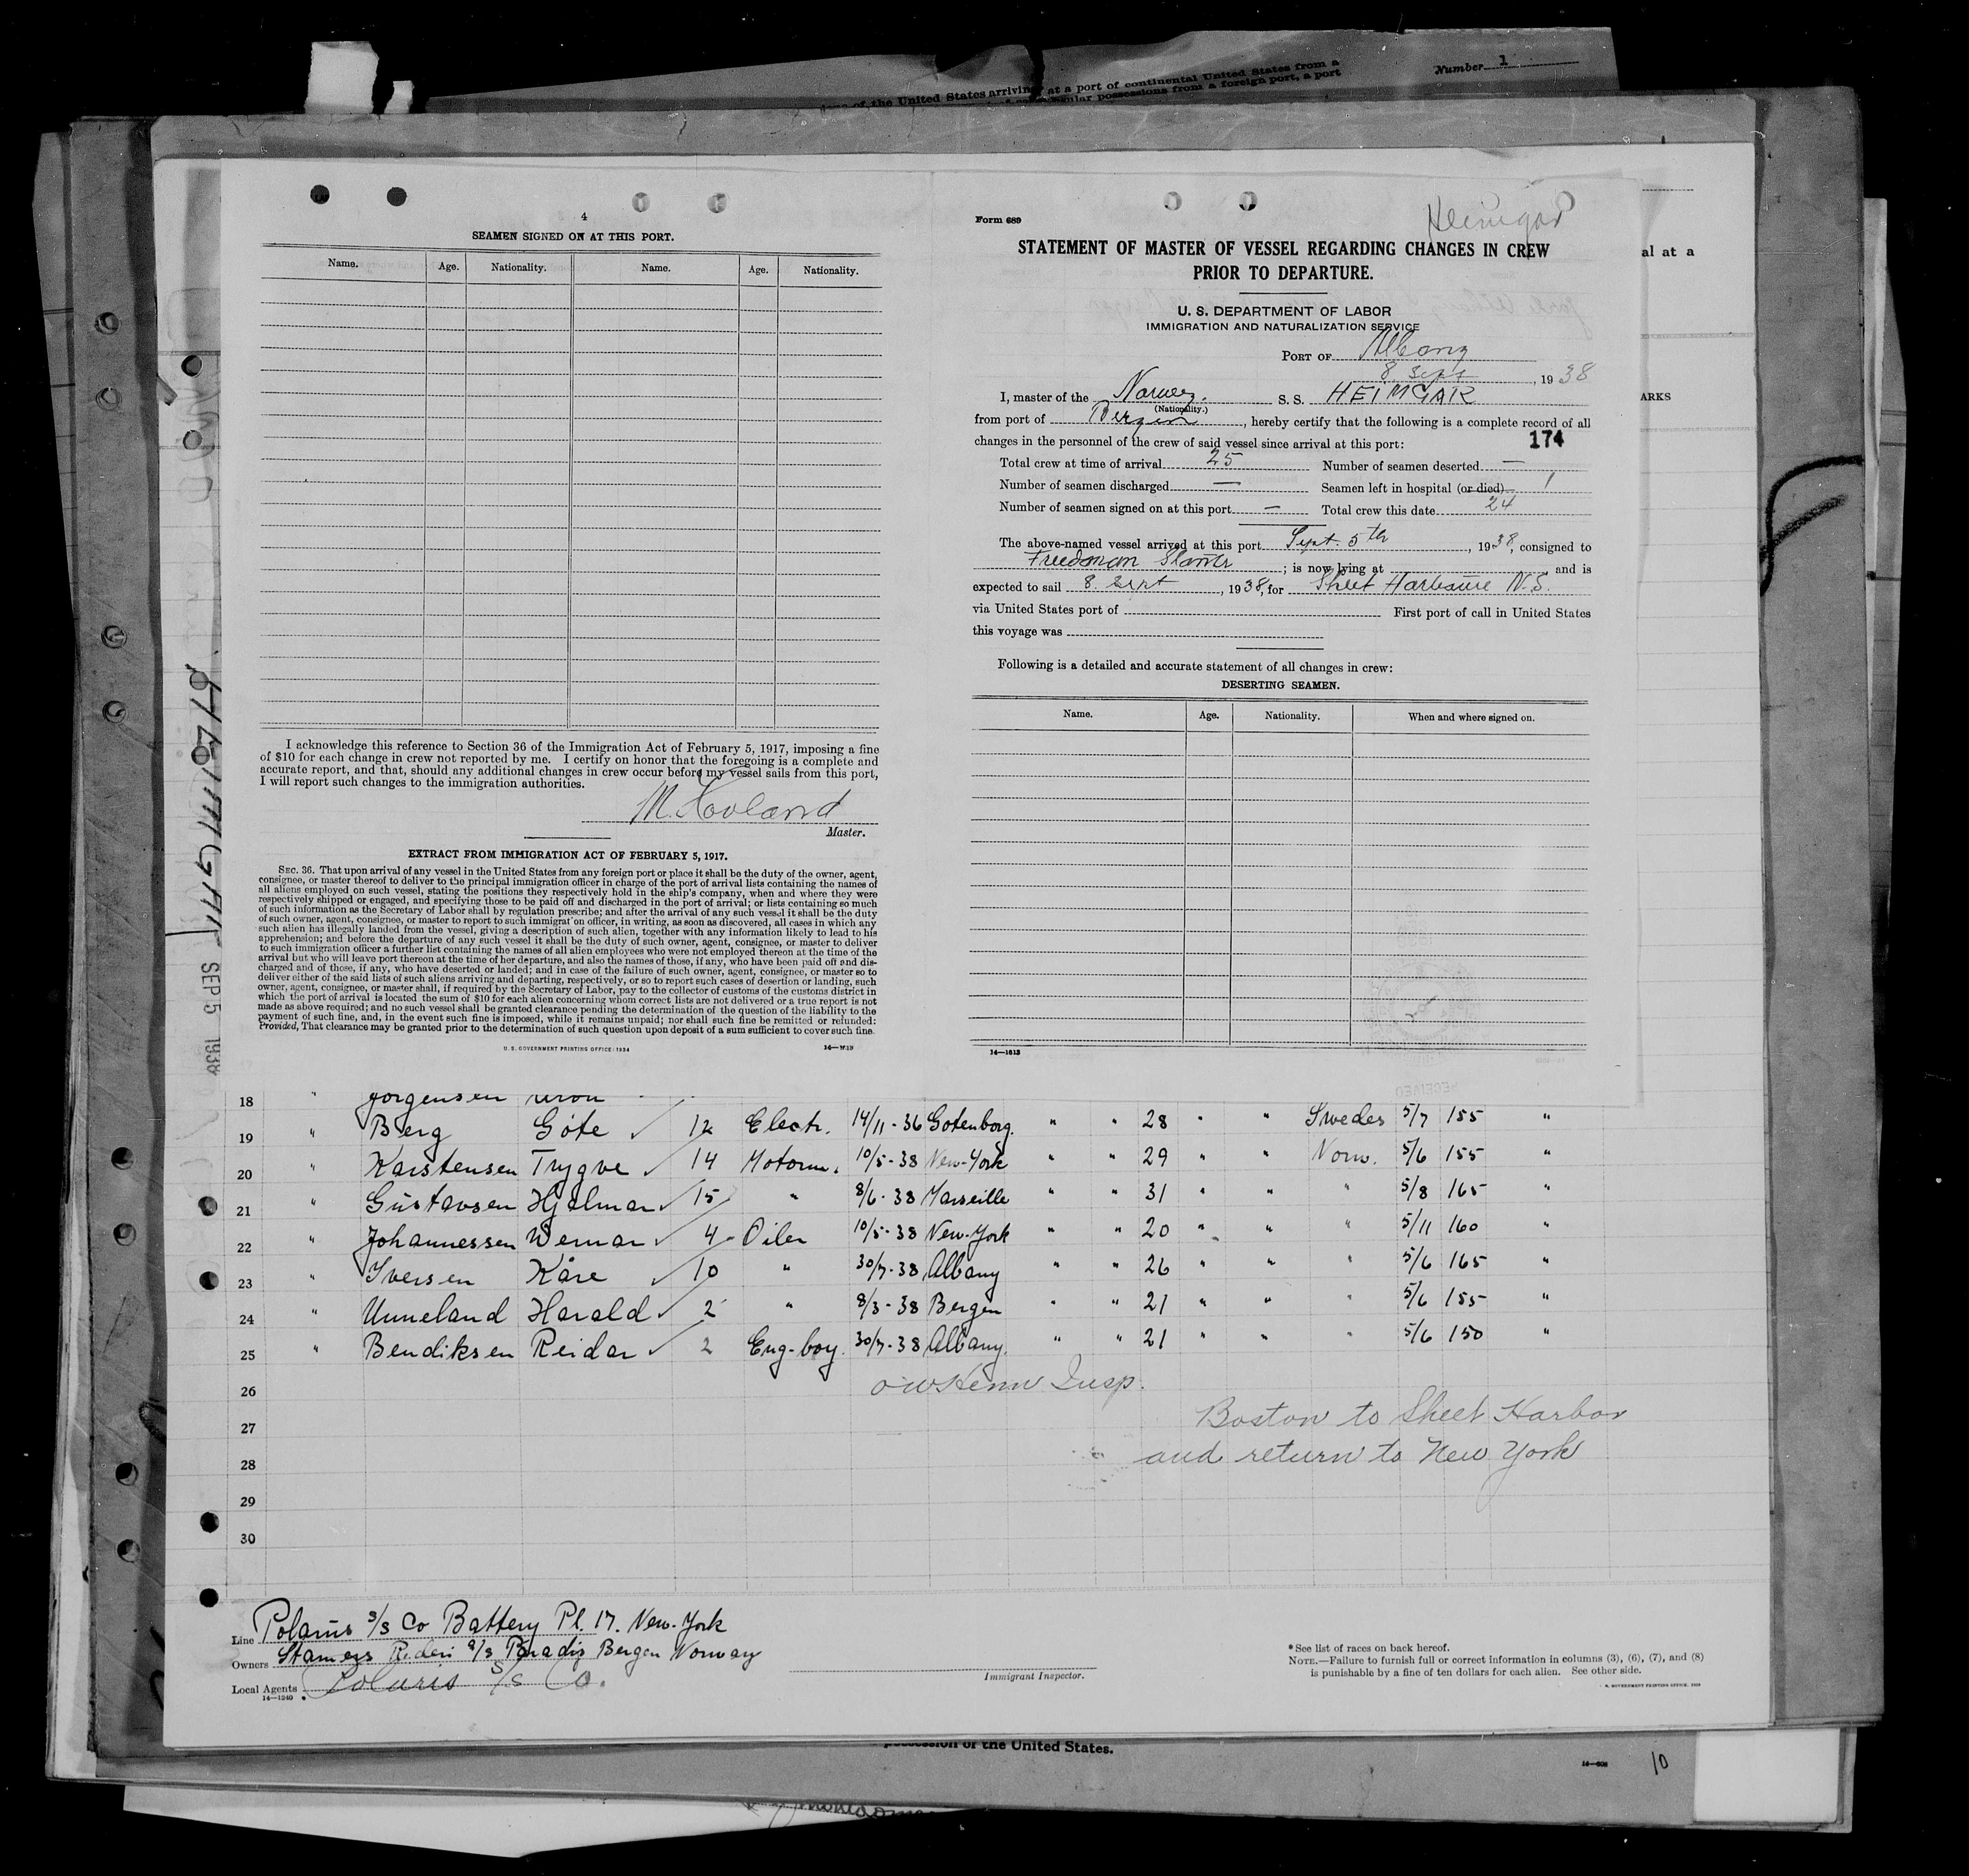 Number 1
of the United States arriving at a port of continental United States from a
insular possessions from a foreign port, a port
4
SEAMEN SIGNED ON AT THIS PORT.
Name. Age. Nationality. Name. Age. Nationality.
I acknowledge this reference to Section 36 of the Immigration Act of February 5, 1917, imposing a fine
of $10 for each change in crew not reported by me. I certify on honor that the foregoing is a complete and
accurate report, and that, should any additional changes in crew occur before my vessel sails from this port,
I will report such changes to the immigration authorities.
M. Hovland
Master.
EXTRACT FROM IMMIGRATION ACT OF FEBRUARY 5, 1917.
SEC. 36. That upon arrival of any vessel in the United States from any foreign port or place it shall be the duty of the owner, agent,
consignee, or master thereof to deliver to the principal immigration officer in charge of the port of arrival lists containing the names of
all aliens employed on such vessel, stating the positions they respectively hold in the ship's company, when and where they were
respectively shipped or engaged, and specifying those to be paid off and discharged in the port of arrival; or lists containing so much
of such information as the Secretary of Labor shall by regulation prescribe; and after the arrival of any such vessel it shall be the duty
of such owner, agent, consignee, or master to report to such immigration officer, in writing, as soon as discovered, all cases in which any
such alien has illegally landed from the vessel, giving a description of such alien, together with any information likely to lead to his
apprehension; and before the departure of any such vessel it shall be the duty of such owner, agent, consignee, or master to deliver
to such immigration officer a further list containing the names of all alien employees who were not employed thereon at the time of the
arrival but who will leave port thereon at the time of her departure, and also the names of those, if any, who have been paid off and dis-
charged and of those, if any, who have deserted or landed; and in case of the failure of such owner, agent, consignee, or master so to
deliver either of the said lists of such aliens arriving and departing, respectively, or so to report such cases of desertion or landing, such
owner, agent, consignee, or master shall, if required by the Secretary of Labor, pay to the collector of customs of the customs district in
which the port of arrival is located the sum of $10 for each alien concerning whom correct lists are not delivered or a true report is not
made as above required; and no such vessel shall be granted clearance pending the determination of the question of the liability to the
payment of such fine, and, in the event such fine is imposed, while it remains unpaid; nor shall such fine be remitted or refunded:
Provided, That clearance may be granted prior to the determination of such question upon deposit of a sum sufficient to cover such fine.
U. S. GOVERNMENT PRINTING OFFICE: 1934
Heimgar
Form 689
STATEMENT OF MASTER OF VESSEL REGARDING CHANGES IN CREW
PRIOR TO DEPARTURE.
U. S. DEPARTMENT OF LABOR
IMMIGRATION AND NATURALIZATION SERVICE
PORT OF Albany
8 Sept, 1938
I, master of the Norweg. S. S. HEIMGAR
(Nationality.)
from port of Bergen, hereby certify that the following is a complete record of all
changes in the personnel of the crew of said vessel since arrival at this port:
174
Total crew at time of arrival 25 Number of seamen deserted —
Number of seamen discharged — Seamen left in hospital (or died) 1
Number of seamen signed on at this port — Total crew this date 24
The above-named vessel arrived at this port Sept. 5th, 1938, consigned to
Freedman ; is now lying at and is
expected to sail 8 Sept, 1938, for Sheet Harbour N.S.
via United States port of First port of call in United States
this voyage was
Following is a detailed and accurate statement of all changes in crew:
DESERTING SEAMEN.
Name. Age. Nationality. When and where signed on.
14—1613
al at a
ARKS
HEIMGAR
SEP 5 1938
18 " Jorgensen
19 " Berg Göte 12 Electr. 14/11-36 Gotenborg. " " 28 " " Swedes 5/7 155 "
20 " Karstensen Trygve 14 Motorm. 10/5-38 New-York " " 29 " " Norw. 5/6 155 "
21 " Gustavsen Hjalmar 15 " 8/6-38 Marseille " " 31 " " " 5/8 165 "
22 " Johannessen Werner 4 Oiler 10/5-38 New-York " " 20 " " " 5/11 160 "
23 " Iversen Kåre 10 " 30/7-38 Albany " " 26 " " " 5/6 165 "
24 " Unneland Harald 2 " 8/3-38 Bergen " " 21 " " " 5/6 155 "
25 " Bendiksen Reidar 2 Eng-boy. 30/7-38 Albany. " " 21 " " " 5/6 150 "
26 Insp.
27 Boston to Sheet Harbor
28 and return to New York
29
30
Line Polaris S/S Co Battery Pl. 17. New-York
Owners Stamers Rederi a/s Paradis Bergen Norway
Local Agents Polaris S/S Co.
14—1240
Immigrant Inspector.
* See list of races on back hereof.
NOTE.—Failure to furnish full or correct information in columns (3), (6), (7), and (8)
is punishable by a fine of ten dollars for each alien. See other side.
possession of the United States.
10